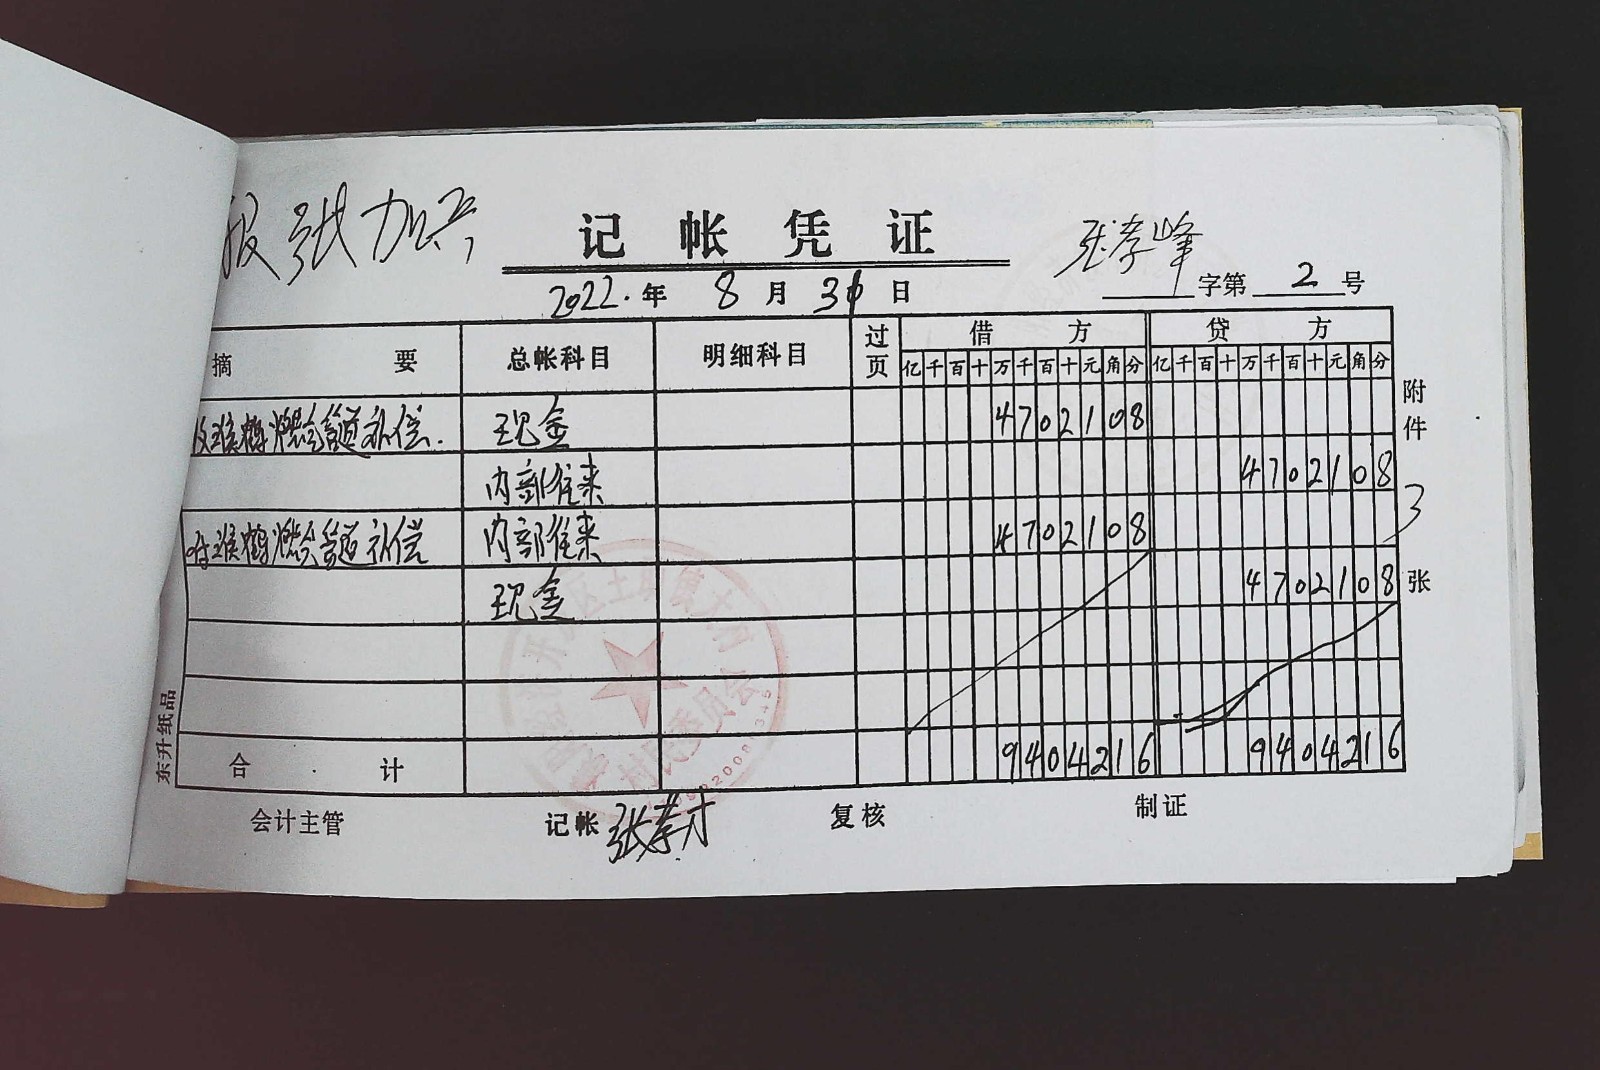 报 张加兵
记帐凭证
张孝峰
2022.年 8月 31日
字第 2 号
摘要 总帐科目 明细科目 过页 借方 贷方
亿千百十万千百十元角分 亿千百十万千百十元角分
收潍鹤燃气管道补偿. 现金 4702108
内部往来 4702108
付潍鹤燃气管道补偿 内部往来 4702108
现金 4702108
合计 9404216 9404216
附件 3 张
会计主管 记帐 张孝才 复核 制证
东升纸品
村民委员会